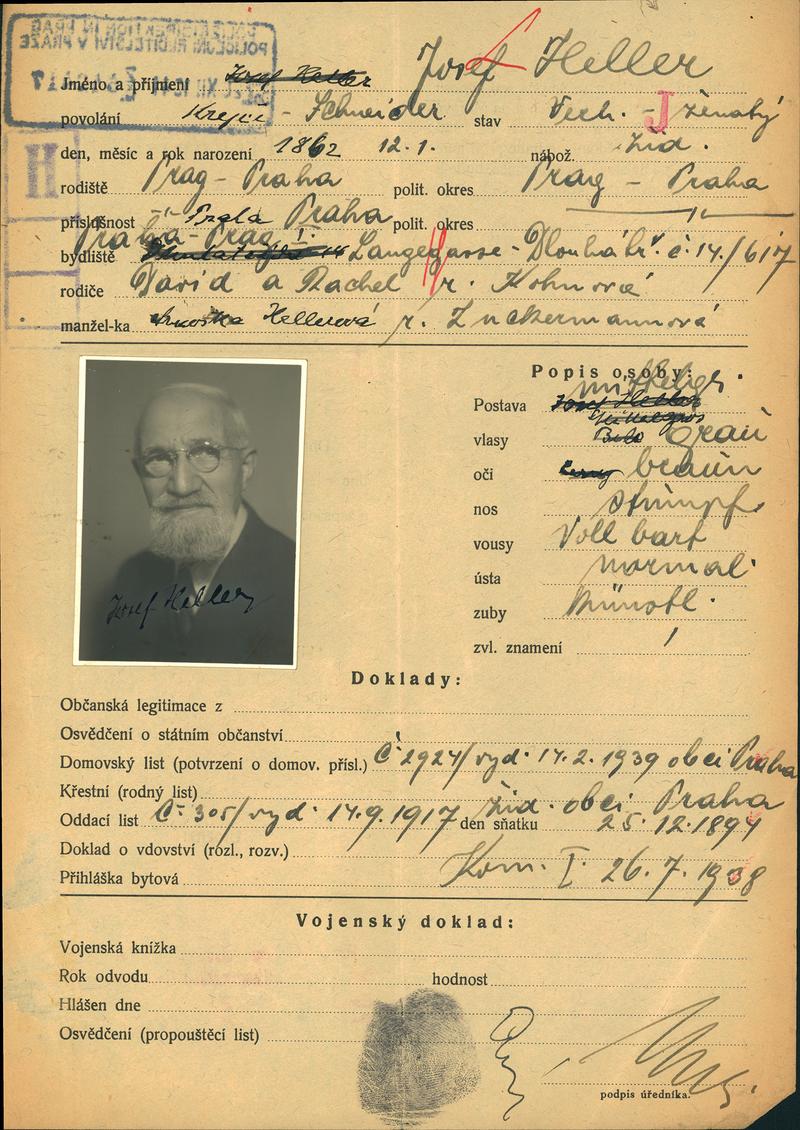 POLIZEIDIREKTION IN PRAG
POLICEJNÍ ŘEDITELSTVÍ V PRAZE
Jméno a příjmení Josef Heller Josef Heller
povolání Krejčí - Schneider stav Verh. - ženatý
J
den, měsíc a rok narození 1862 12.1. nábož. žid.
H
rodiště Prag - Praha polit. okres Prag - Praha
příslušnost Praha polit. okres
Praha - Prag I.
bydliště Langegasse - Dlouhá tř. č. 14./617
rodiče David a Rachel r. Kohnová
manžel-ka Hellerová r. Zuckermannová
Popis osoby:
Postava Josef Heller mittelgr.
Mittelgros
vlasy Bílé grau
oči černý braun
nos stumpf
vousy Vollbart
ústa normal
zuby
zvl. znamení /
Josef Heller
Doklady:
Občanská legitimace z
Osvědčení o státním občanství
Domovský list (potvrzení o domov. přísl.) Č 2924/vyd. 14.2.1939 obcí Praha
Křestní (rodný list)
žid. obcí Praha
Oddací list Č. 305/vyd. 14.9.1917 den sňatku 25.12.1894
Doklad o vdovství (rozl., rozv.)
Přihláška bytová Kom. I. 26.7.1938
Vojenský doklad:
Vojenská knížka
Rok odvodu hodnost
Hlášen dne
Osvědčení (propouštěcí list)
podpis úředníka.